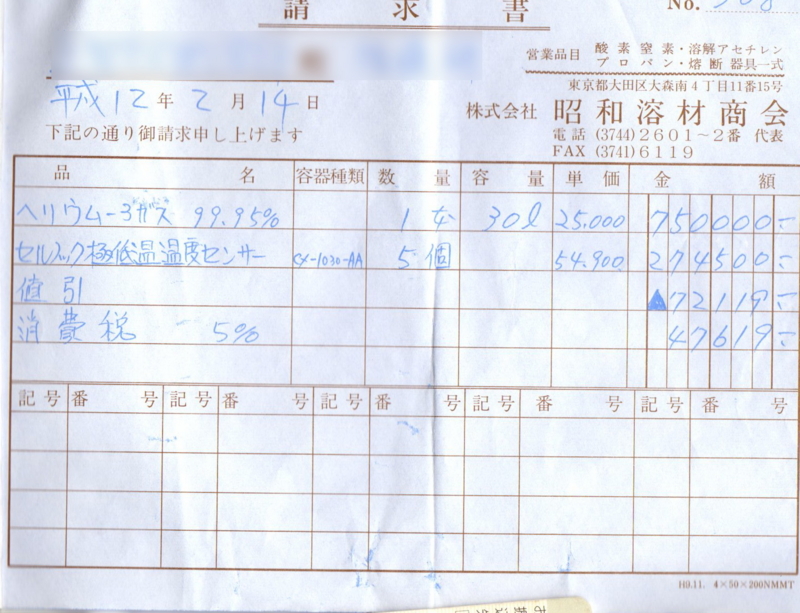 請求書
No.
営業品目 酸素窒素・溶解アセチレン
プロパン・熔断器具一式
平成12年2月14日
東京都大田区大森南4丁目11番15号
株式会社 昭和溶材商会
下記の通り御請求申し上げます
電話 (3744)2601～2番 代表
FAX (3741)6119
品名 容器種類 数量 容量 単価 金額
ヘリウム-3ガス 99.95% 1本 30ℓ 25.000 750000-
極低温温度センサー CX-1030-AA 5個 54.900 274500-
値引 ▲72119-
消費税 5% 47619-
記号 番号 記号 番号 記号 番号 記号 番号 記号 番号
H9.11. 4×50×200NMMT